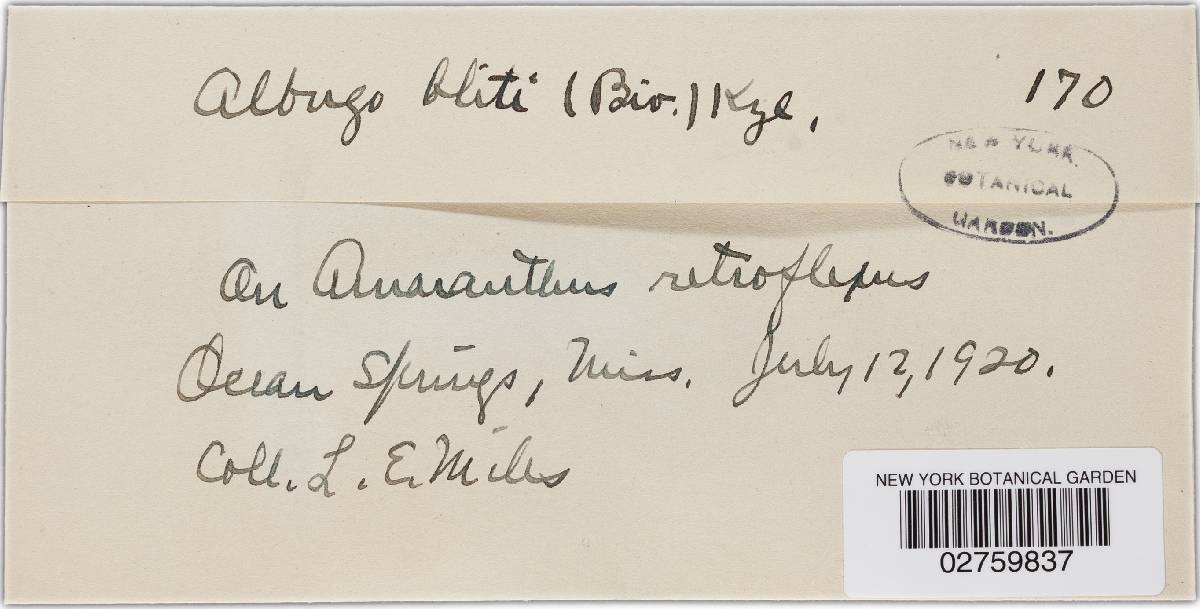 Albugo bliti (Biv.) Kze, 170
NEW YORK
BOTANICAL
GARDEN.
On Amaranthus retroflexus
Ocean Springs, Miss. July 12, 1920.
Coll. L. E. Miles
NEW YORK BOTANICAL GARDEN
02759837